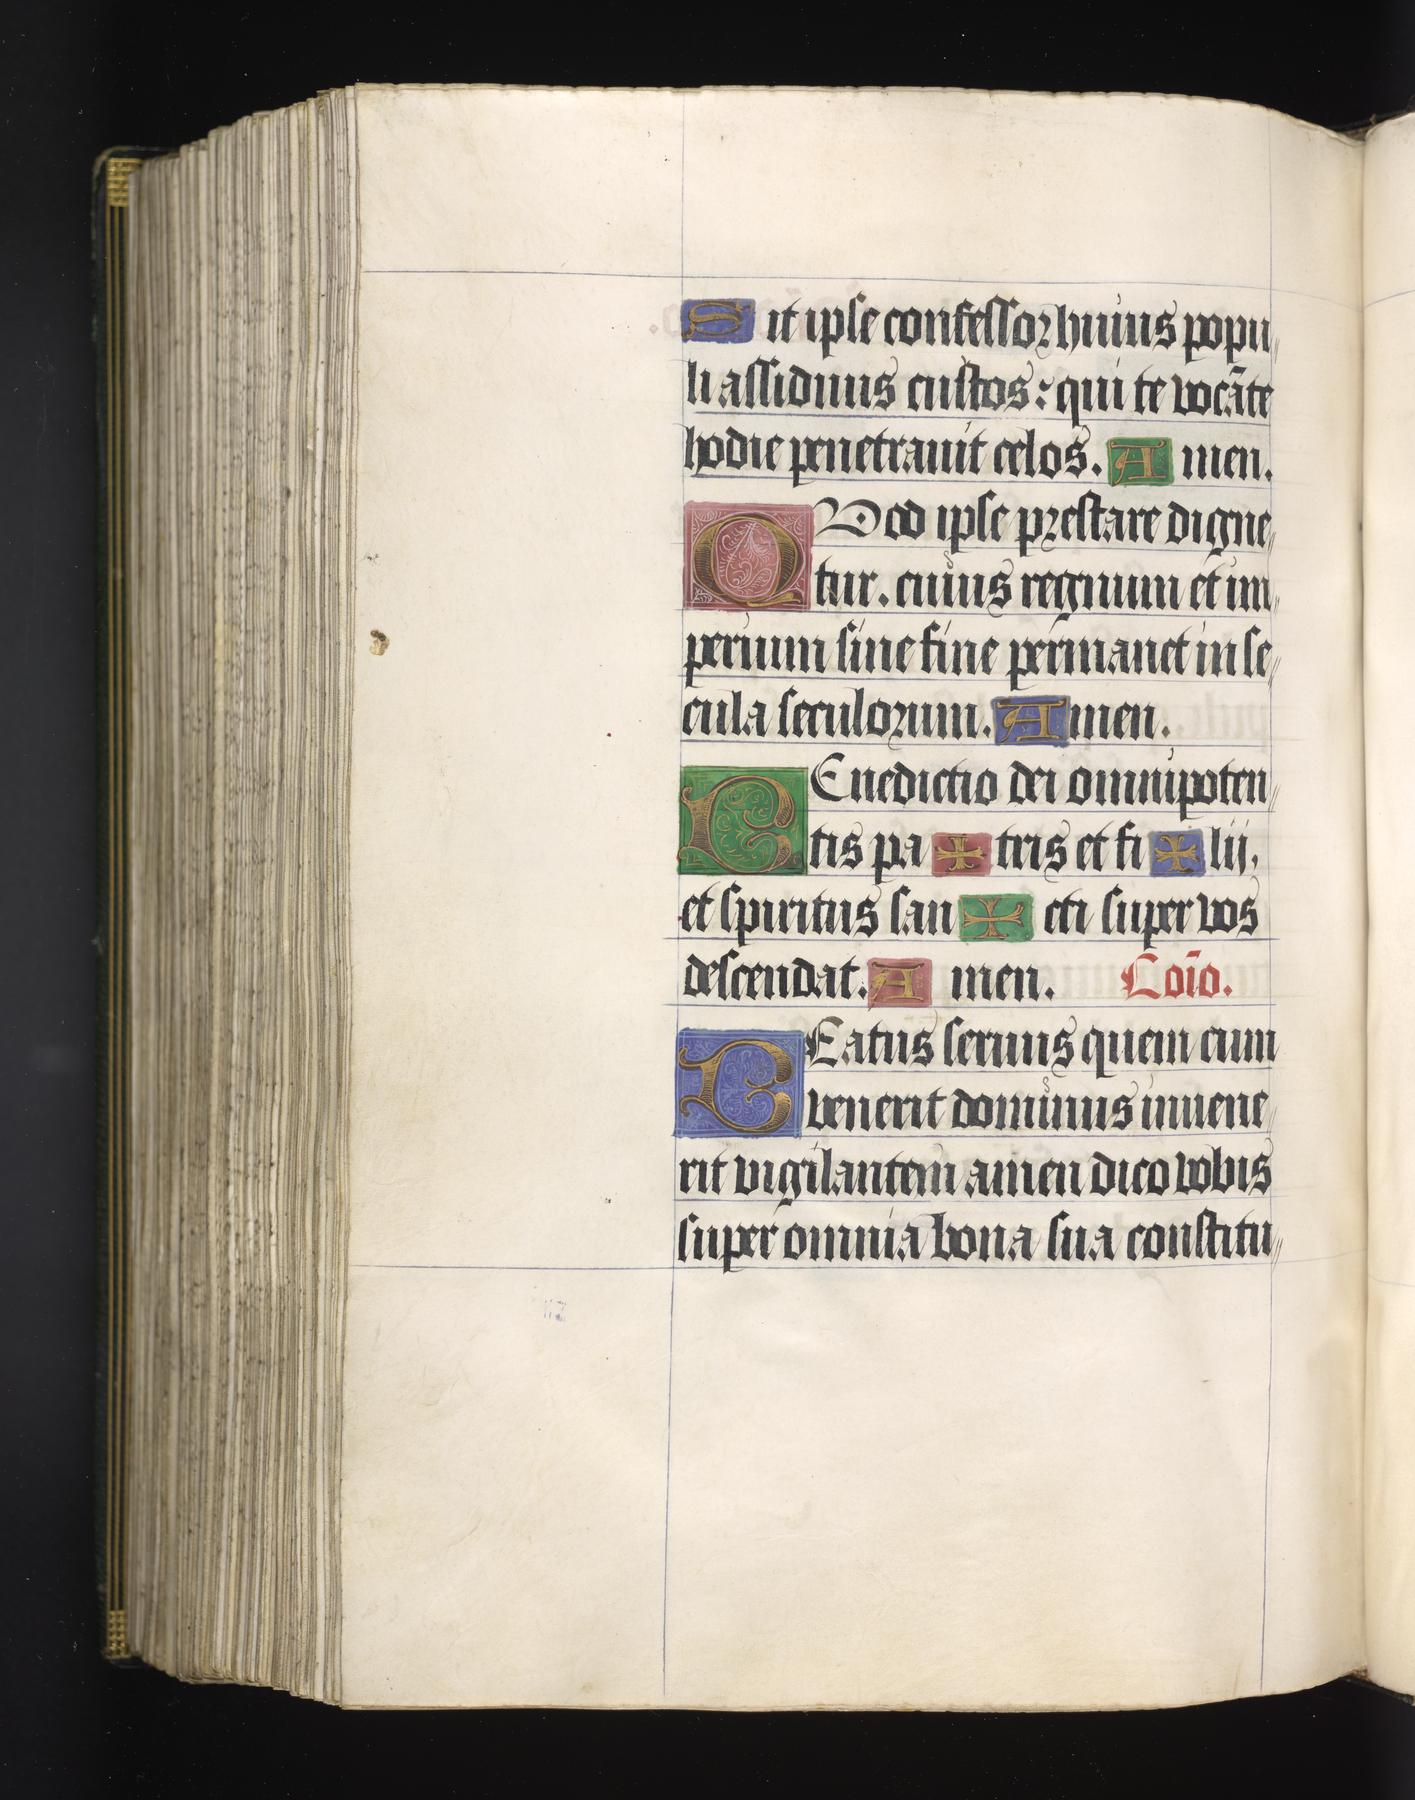 Sit ipse confessor huius popu
li assiduus custos: qui te vocãte
hodie penetrauit celos. Amen.
QVod ipse prestare digne
tur. cuius regnum et im
perium sine fine permanet in se
cula seculorum. Amen.
BEnedictio dei omnipoten
tis pa ✠ tris et fi ✠ lii,
et spiritus san ✠ cti super vos
descendat. Amen. Cõıo.
BEatus seruus quem cum
venerit dominus inuene
rit vigilantem amen dico vobis
super omnia bona sua constitu